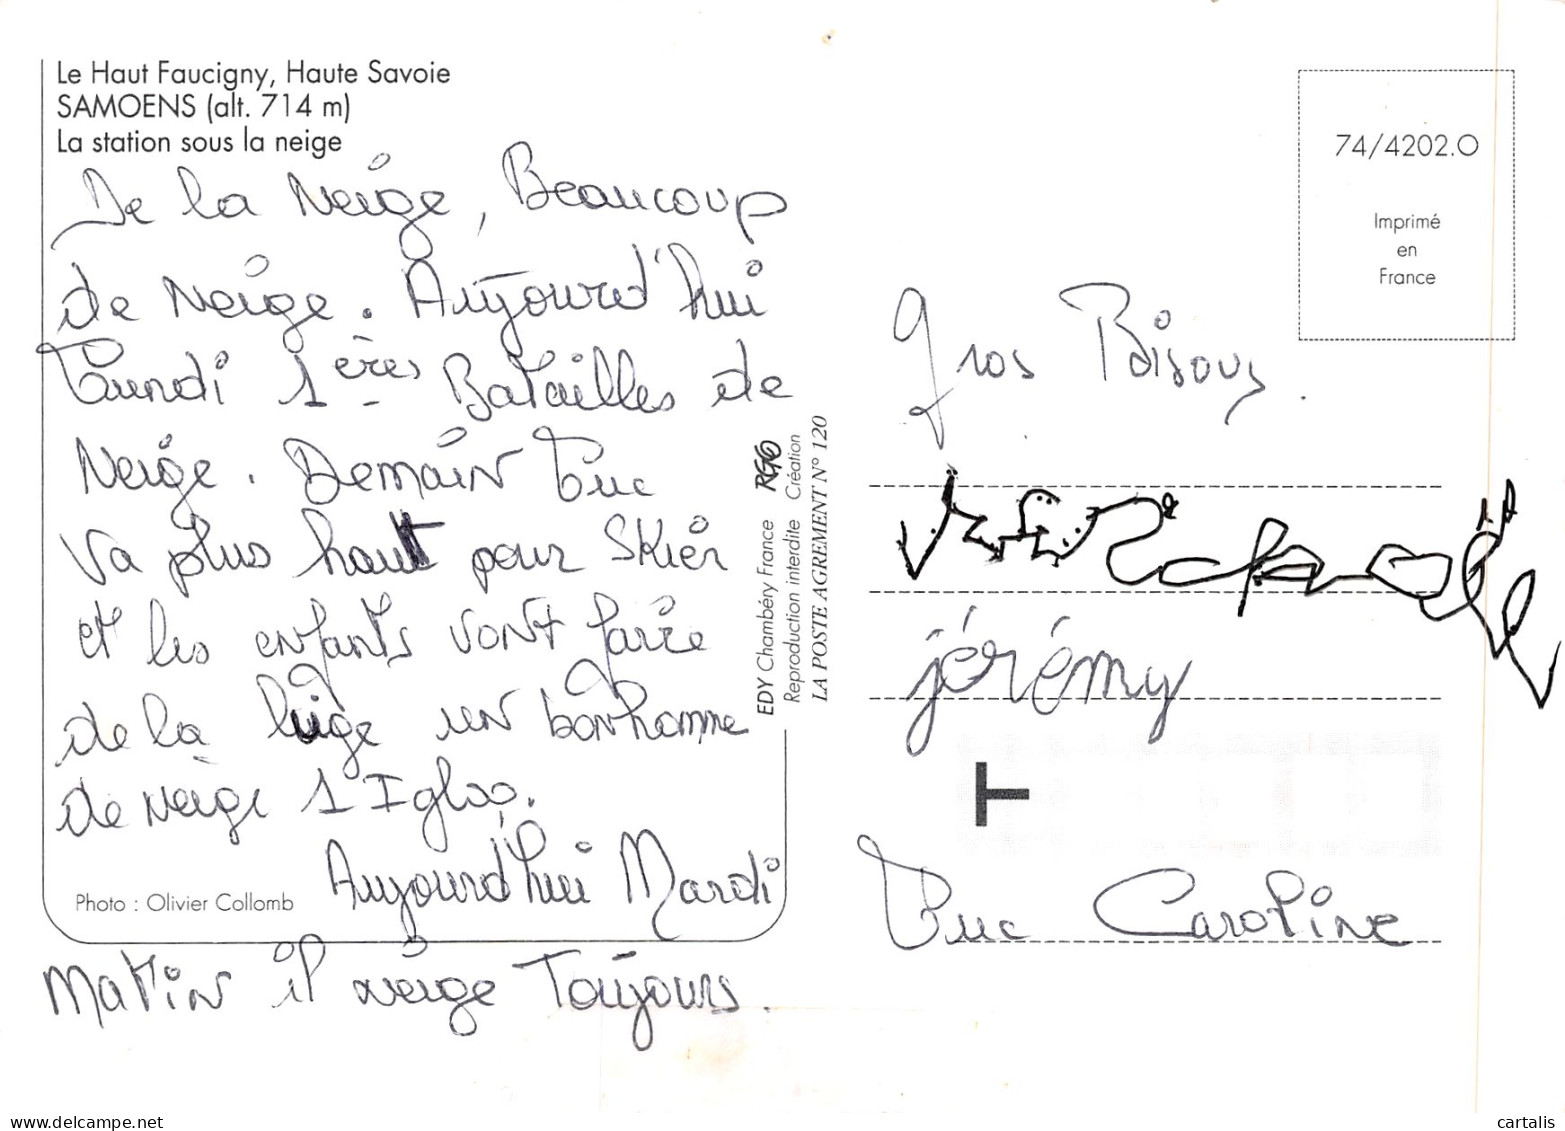 Le Haut Faucigny, Haute Savoie
SAMOENS (alt. 714 m)
La station sous la neige
De la Neige, Beaucoup
de Neige. Aujourd'hui
Lundi 1ères Batailles de
Neige. Demain Luc
va plus haut pour Skier
et les enfants vont faire
de la luge un bonhomme
de neige 1 Igloo.
Aujourd'hui Mardi
Matin il neige Toujours.
Photo : Olivier Collomb
EDY Chambéry France
Reproduction interdite Création
LA POSTE AGREMENT N° 120
74/4202.O
Imprimé
en
France
Gros Bisous.
jérémy
T
Luc Caroline
cartalis